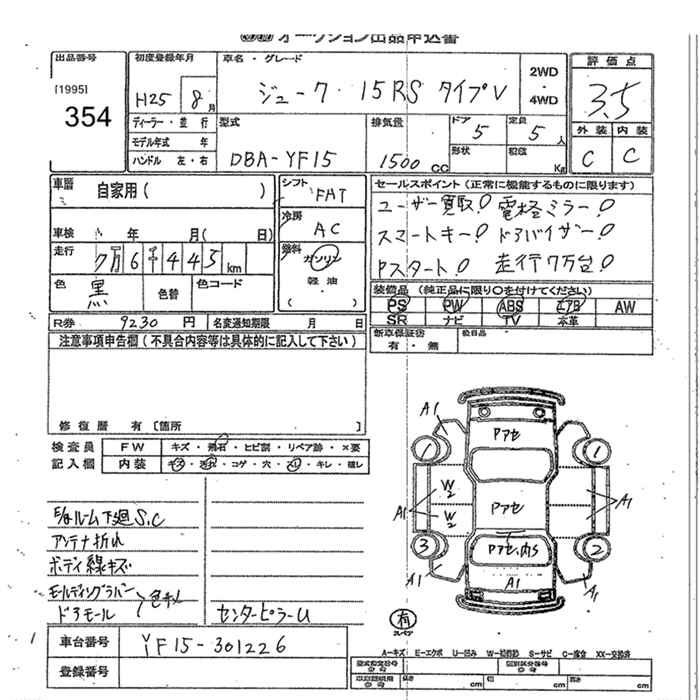 オークション出品申込書
出品番号 初度登録年月 車名・グレード 2WD・4WD 評価点
[1995]
354
H25 8月 ジューク 15RS タイプV 3.5
ディーラー・並行 型式 排気量 ドア 定員 外装 内装
モデル年式 年 5 5人 C C
ハンドル 左・右 DBA-YF15 1500cc 形状 積載 Kg
車歴 自家用( ) シフト FAT セールスポイント(正常に機能するものに限ります)
ユーザー買取! 電格ミラー!
車検 年 月( 日) 冷房 AC スマートキー! ドアバイザー!
走行 7万6千445km 燃料 ガソリン Pスタート! 走行7万台!
軽油
( )
色 黒 色替 色コード 装備品 (純正品に限り○を付けてください)
PS PW ABS エアB AW
SR ナビ TV 本革
R券 9230円 名変通知期限 月 日 新車保証書 有・無 欠品品
注意事項申告欄(不具合内容等は具体的に記入して下さい)
修復歴 有〔箇所 〕
検査員 FW キズ・飛石・ヒビ割・リペア跡・×要
記入欄 内装 キズ・汚れ・コゲ・穴・スレ・キレ・破レ
E/gルーム下廻S,C
アンテナ折れ
ボディ線キズ
モールディングラバー
ドアモール 色キメ センターピラーU
車台番号 YF15-301226
登録番号
A1 PアセA1
1 1
W2 Pアセ
A1 W2 A1
3 Pアセ,内S 2
A1 A1 A1
有
スペア
A-キズ E-エクボ U-凹み W-補修跡 S-サビ C-腐食 XX-交換済
型式指定番号 類別区分番号
長さ cm 幅 cm 高さ cm